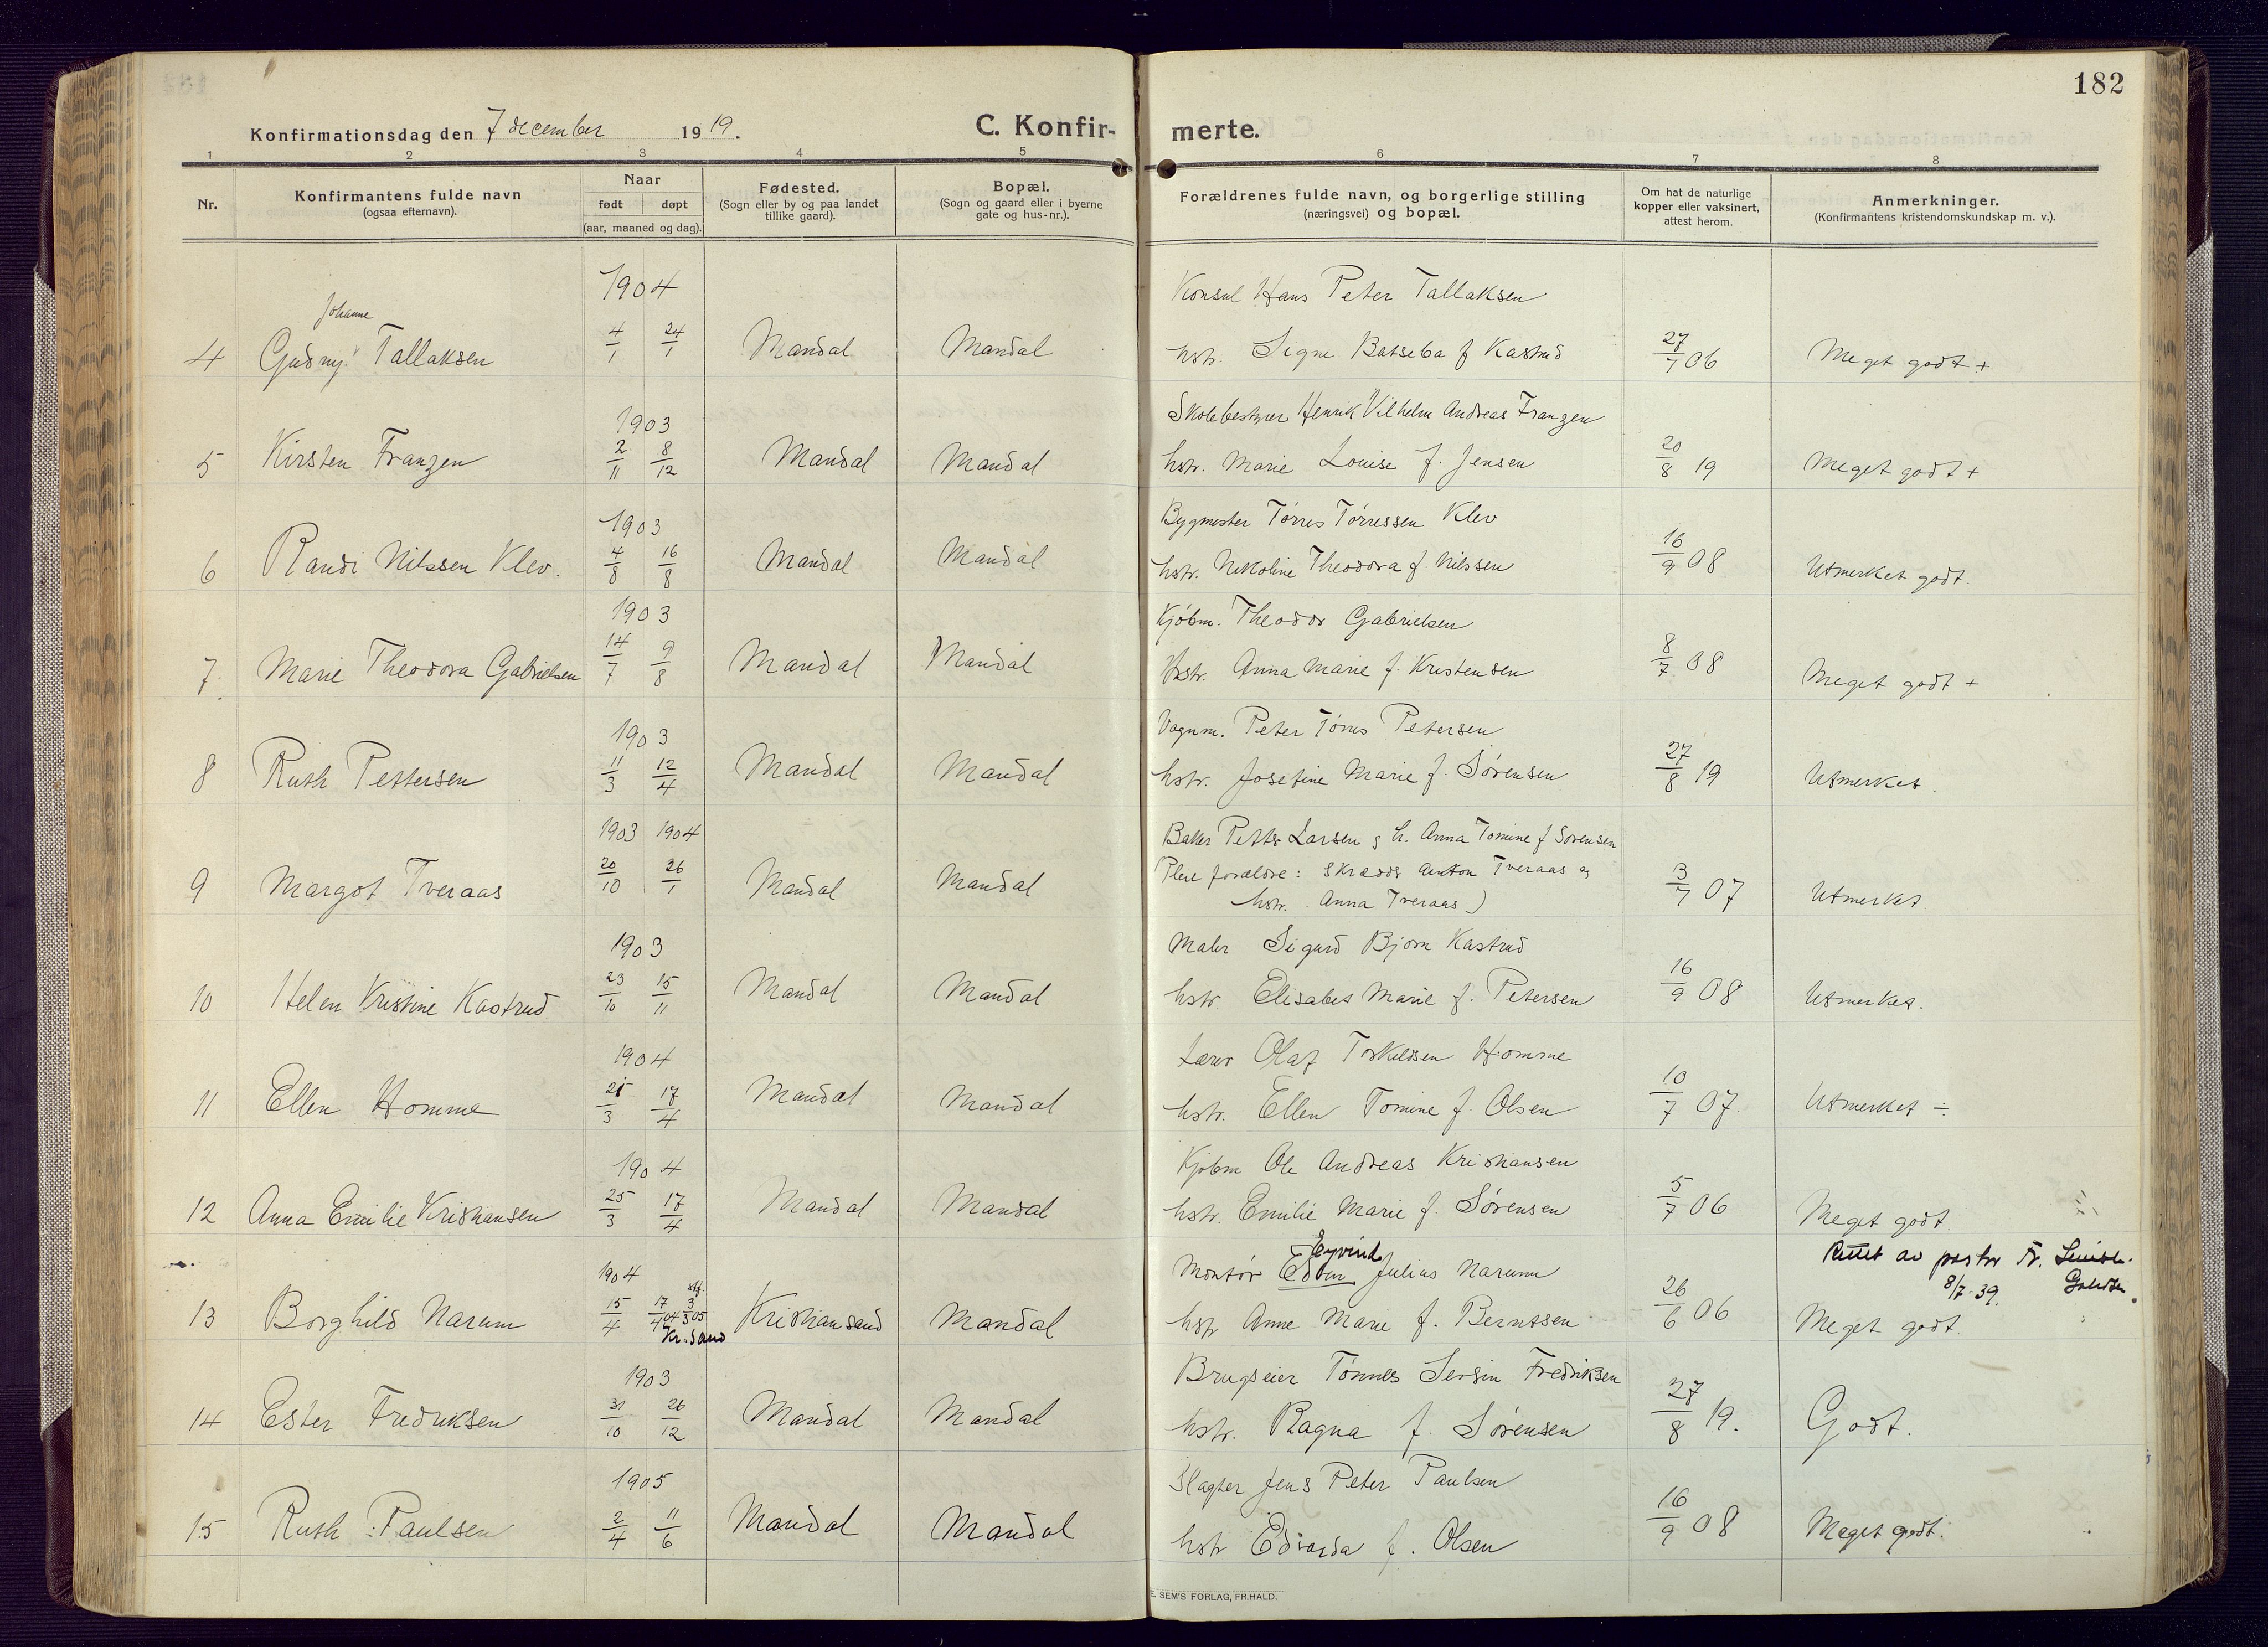 182
Konfirmationsdag den 7 december 1919.
C. Konfir-merte.
1 2 3 4 5 6 7 8
Nr.
Konfirmantens fulde navn
(ogsaa efternavn).
Naar
født døpt
(aar, maaned og dag).
Fødested.
(Sogn eller by og paa landet
tillike gaard).
Bopæl.
(Sogn og gaard eller i byerne
gate og hus-nr.).
Forældrenes fulde navn, og borgerlige stilling
(næringsvei) og bopæl.
Om hat de naturlige
kopper eller vaksinert,
attest herom.
Anmerkninger.
(Konfirmantens kristendomskundskap m. v.).
1904 Konsul Hans Peter Tallaksen
Johanne
4 Gudny Tallaksen 4/1 24/1 Mandal Mandal hstr. Signe Batseba f Kastrud 27/7 06 Meget godt +
1903 Skolebestyrer Henrik Vilhelm Andreas Franzen
5 Kirsten Franzen 2/11 8/12 Mandal Mandal hstr. Marie Louise f. Jensen 20/8 19 Meget godt +
1903 Bygmester Tørres Tørressen Klev
6 Randi Nilssen Klev. 4/8 16/8 Mandal Mandal hstr. Nikoline Theodora f. Nilssen 16/9 08 Utmerket godt.
1903 Kjøbm. Theodor Gabrielsen
7. Marie Theodora Gabrielsen 14/7 9/8 Mandal Mandal Hstr. Anna Marie f. Kristensen 8/7 08 Meget godt +
1903 Vognm. Peter Tørres Petersen
8 Ruth Pettersen 11/3 12/4 Mandal Mandal hstr. Josefine Marie f. Sørensen 27/8 19 Utmerket.
1903 1904 Baker Petter Larsen og h. Anna Tomine f Sørensen
9 Margot Tveraas 20/10 26/1 Mandal Mandal Pleieforældre: Skrædder Anton Tveraas og 3/7 07 Utmerket.
hstr. Anna Tveraas)
1903 Maler Sigurd Bjørn Kastrud
10 Helen Kristine Kastrud 23/10 15/11 Mandal Mandal hstr Elisabet Marie f. Petersen 16/9 08 Utmerket.
1904 Lærer Olaf Torkildsen Homme
11 Ellen Homme 21/3 17/4 Mandal Mandal hstr. Ellen Tomine f. Olsen 10/7 07. Utmerket ÷
1904 Kjøbm Ole Andreas Kristiansen
12 Anna Emilie Kristiansen 25/3 17/4 Mandal Mandal hstr. Emilie Marie f. Sørensen 5/7 06 Meget godt.
Eyvind Rettet av pastor Fr.
1904 Montør Edvin Julius Narum 8/7-39.
13 Borghild Narum 15/4 17/4 04 3/3 05 Kristiansand Mandal hstr Anne Marie f. Berntsen 26/6 06 Meget godt.
Kr.sand
1903 Brugseier Tønnes Servin Fredriksen
14 Ester Fredriksen 31/10 26/12 Mandal Mandal hstr. Ragna f. Sørensen 27/8 19. Godt.
1905 Slagter Jens Peter Paulsen
15 Ruth Paulsen 2/4 11/6 Mandal Mandal hstr Edvarda f. Olsen 16/9 08 Meget godt.
E. SEM'S FORLAG, FR.HALD.